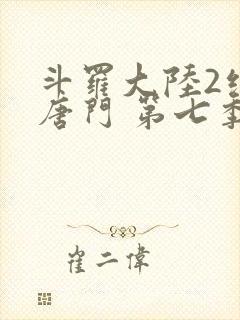 斗羅大陸2絕
唐門 第七季
崔二偉